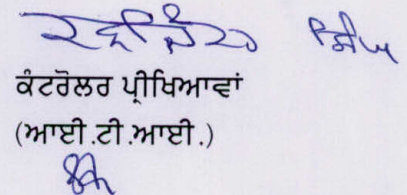 ਸਿੰਘ
ਕੰਟਰੋਲਰ ਪ੍ਰੀਖਿਆਵਾਂ
(ਆਈ.ਟੀ.ਆਈ.)